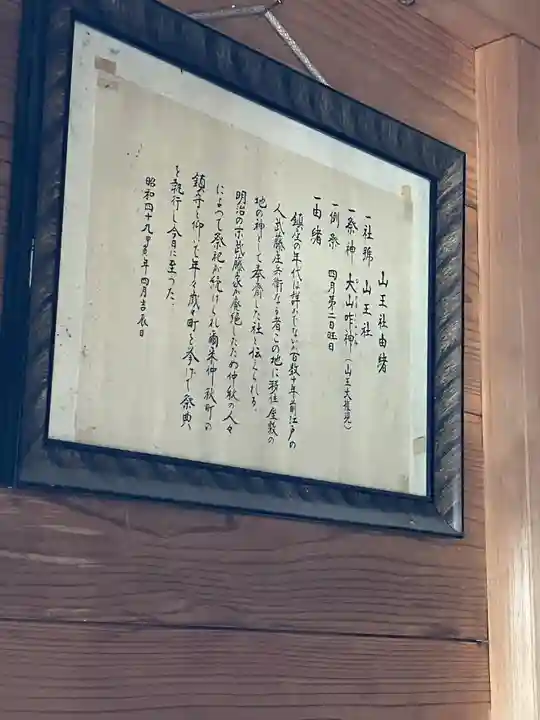 山王社由緒
一社號 山王社
一祭神 大山咋神（山王大権現）
一例祭 四月第二日旺日
一由緒
鎮座の年代は詳かでないが百数十年前江戸の
人武藤庄兵衛なる者この地に移住屋敷の
地の神として奉齋した社と伝えられる。
明治の末武藤家が廃絶したため仲秋の人々
によって祭祀が続けられ爾来仲秋町の
鎮守と仰いで年々歳々町を挙げて祭典
を執行し今日に至った。
昭和四十九甲寅年四月吉辰日